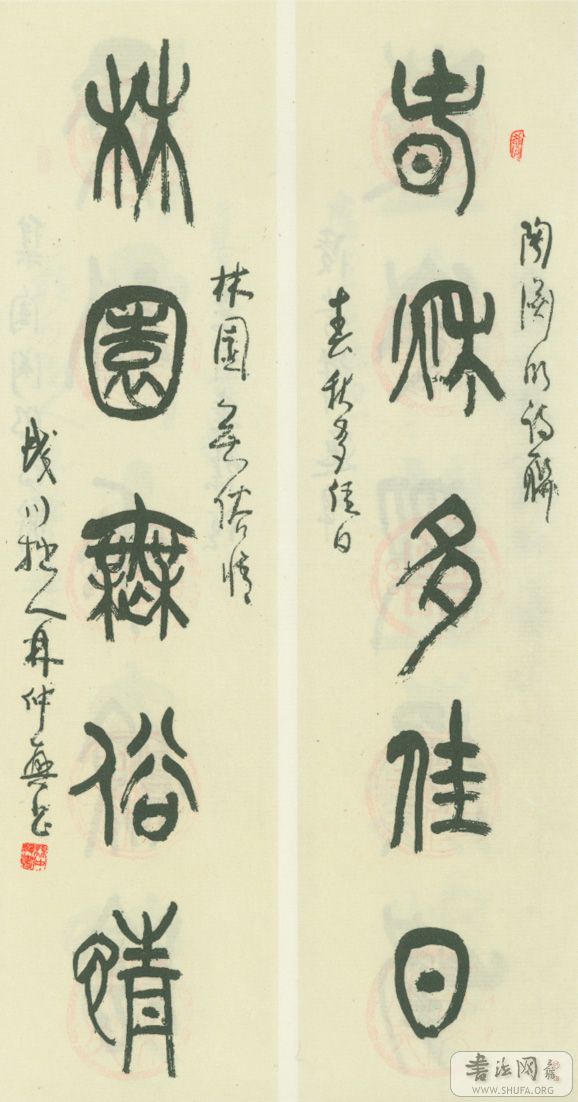 陶淵明詩聯
春秋多佳日
春秋多佳日
林園無俗情
林園無俗情
川拙人林仲興書
書法网
WWW.SHUFA.ORG